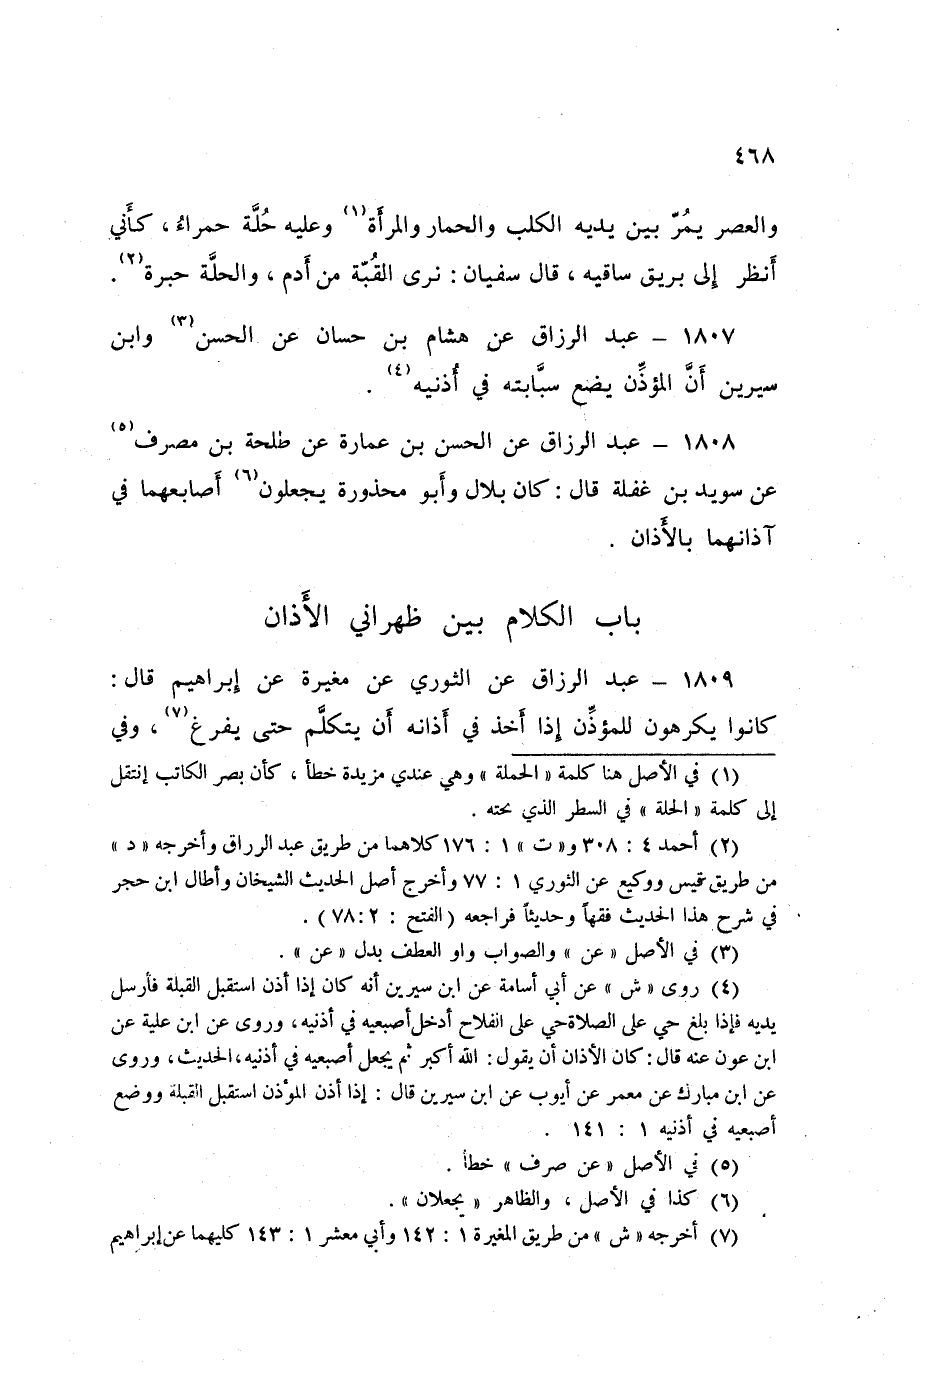 ٤٦٨
والعصر يمُرّ بين يديه الكلب والحمار والمرأَة(١) وعليه حُلَّة حمراءُ ، كأَني
أَنظر إلى بريق ساقيه ، قال سفيان : نرى القُبّة من أَدم ، والحلَّة حبرة(٢).
١٨٠٧ – عبد الرزاق عن هشام بن حسان عن الحسن(٣) وابن
سيرين أَنَّ المؤذِّن يضع سبَّابته في أُذنيه(٤) .
١٨٠٨ – عبد الرزاق عن الحسن بن عمارة عن طلحة بن مصرف(٥)
عن سويد بن غفلة قال : كان بلال وأَبو محذورة يجعلون(٦) أَصابعهما في
آذانهما بالأَذان .
باب الكلام بين ظهراني الأَذان
١٨٠٩ – عبد الرزاق عن الثوري عن مغيرة عن إبراهيم قال :
كانوا يكرهون للمؤذِّن إذا أَخذ في أَذانه أَن يتكلَّم حتى يفرغ(٧) ، وفي
(١) في الأصل هنا كلمة « الحملة » وهي عندي مزيدة خطأ ، كأن بصر الكاتب إنتقل
إلى كلمة « الحلة » في السطر الذي تحته .
(٢) أحمد ٤ : ٣٠٨ و« ت » ١ : ١٧٦ كلاهما من طريق عبد الرراق وأخرجه « د »
من طريق قيس ووكيع عن الثوري ١ : ٧٧ وأخرج أصل الحديث الشيخان وأطال ابن حجر
في شرح هذا الحديث فقهاً وحديثاً فراجعه (الفتح : ٧٨:٢) .
(٣) في الأصل « عن » والصواب واو العطف بدل « عن » .
(٤) روى « ش » عن أبي أسامة عن ابن سيرين أنه كان إذا أذن استقبل القبلة فأرسل
يديه فإذا بلغ حي على الصلاة حي على الفلاح أدخل أصبعيه في أذنيه ، وروى عن ابن علية عن
ابن عون عنه قال : كان الأذان أن يقول : الله أكبر ثم يجعل أصبعيه في أذنيه ، الحديث ، وروى
عن ابن مبارك عن معمر عن أيوب عن ابن سيرين قال : إذا أذن المؤذن استقبل القبلة ووضع
أصبعيه في أذنيه ١ : ١٤١ .
(٥) في الأصل « عن صرف » خطأ .
(٦) كذا في الأصل ، والظاهر « يجعلان » .
(٧) أخرجه « ش » من طريق المغيرة ١ : ١٤٢ وأبي معشر ١ : ١٤٣ كليهما عن إبراهيم